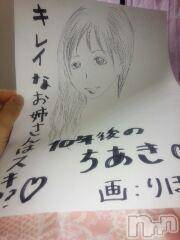 キレイなお姉さんはスキ??♡
10年後の
ちあき♡
画:りほ